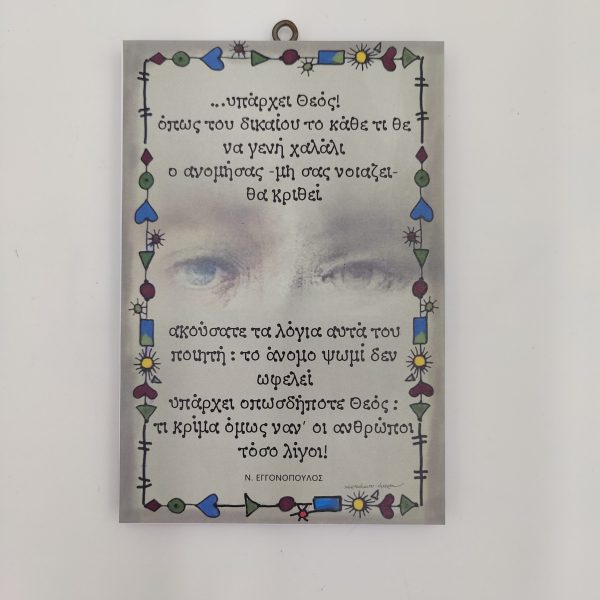 ...υπάρχει Θεός!
όπως του δικαίου το κάθε τι θε
να γενή χαλάλι
ο ανομήσας -μη σας νοιάζει-
θα κριθεί
ακούσατε τα λόγια αυτά του
ποιητή : το άνομο ψωμί δεν
ωφελεί
υπάρχει οπωσδήποτε Θεός :
τι κρίμα όμως ναν' οι ανθρώποι
τόσο λίγοι!
Ν. ΕΓΓΟΝΟΠΟΥΛΟΣ